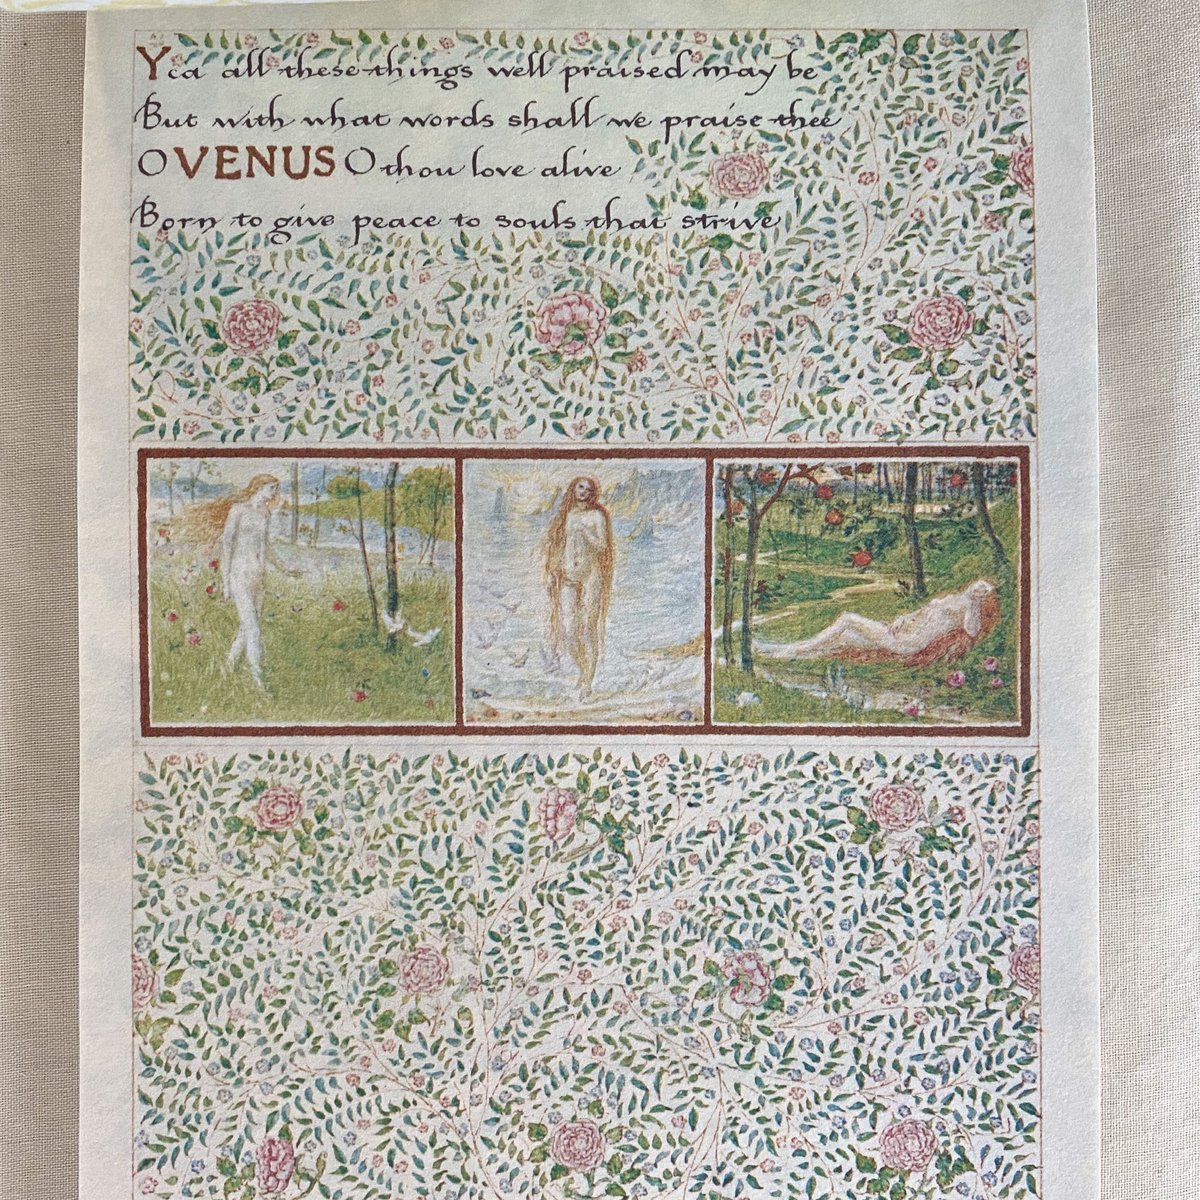 Yea all these things well praised may be
But with what words shall we praise thee
O VENUS O thou love alive
Born to give peace to souls that strive